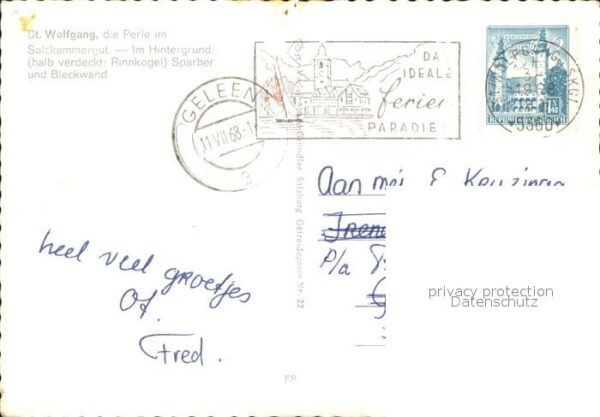 St. Wolfgang, die Perle im
Salzkammergut. — Im Hintergrund:
(halb verdeckt: Rinnkogel) Sparber
und Bleckwand
GELEEN
11 VII 68-1
DAS
IDEALE
ferien
PARADIES
5360
REPUBLIK ÖSTERREICH
Gründler Salzburg Getreidegasse Nr. 22
Aan mej E
P/a
heel veel groetjes
Of.
Fred.
privacy protection
Datenschutz